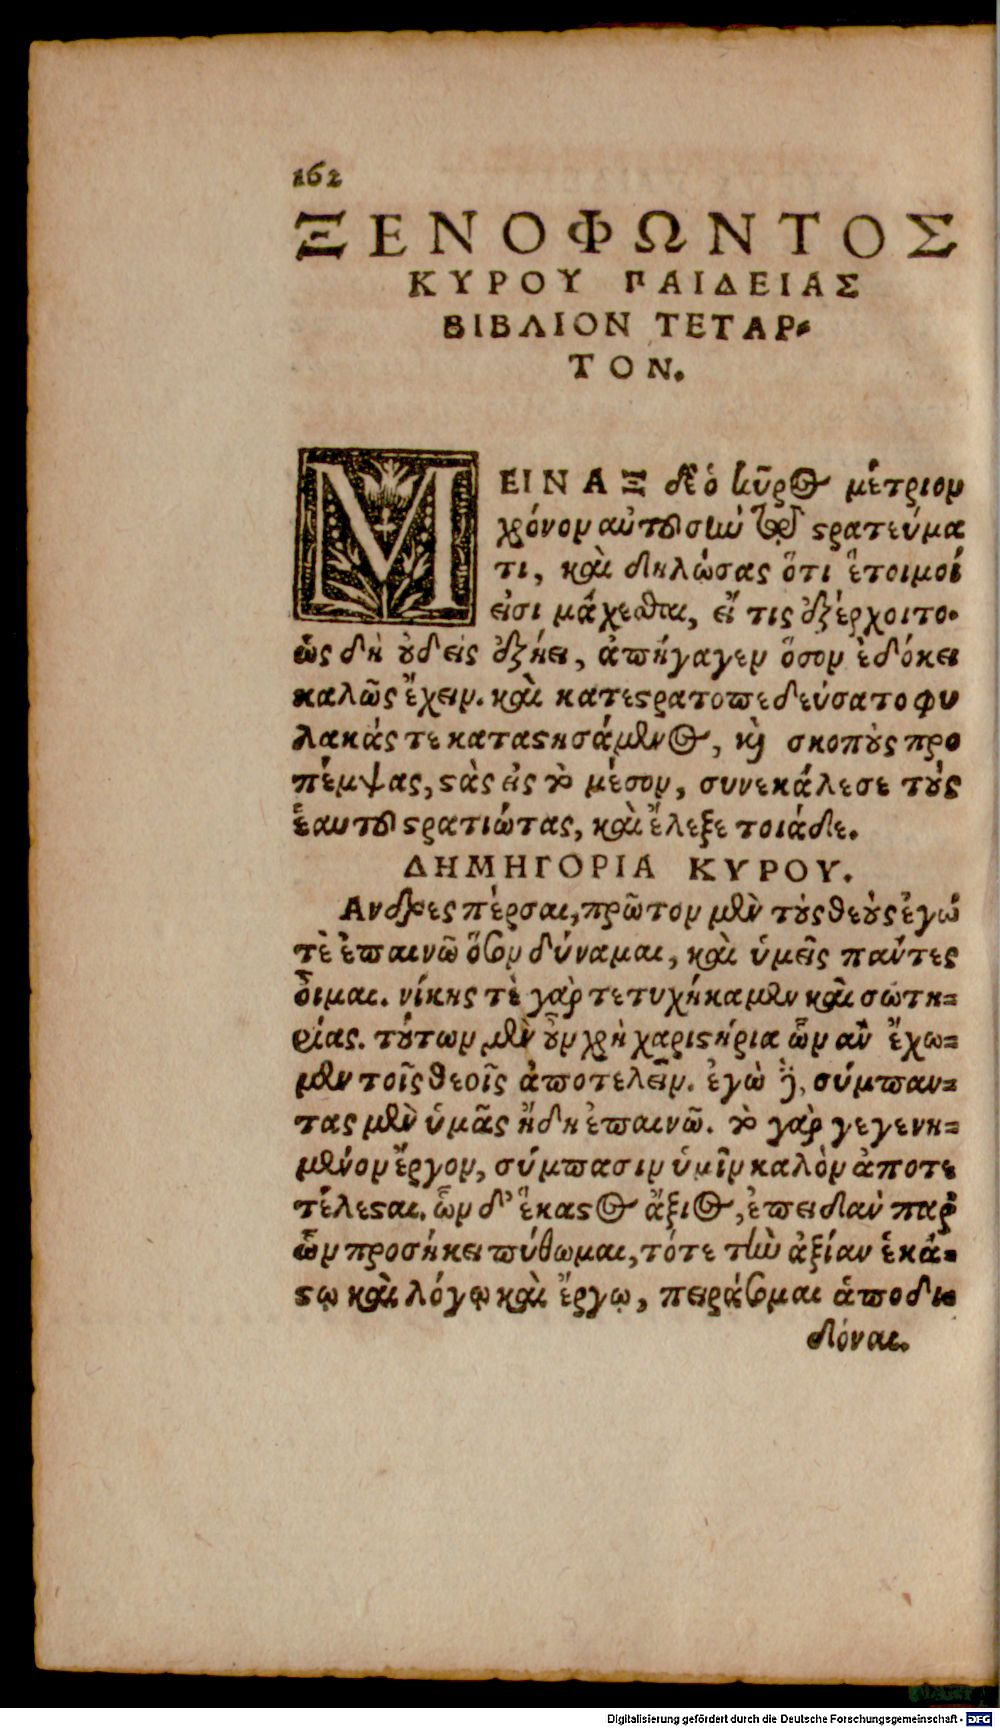 162
ΞΕΝΟΦΩΝΤΟΣ
ΚΥΡΟΥ ΠΑΙΔΕΙΑΣ
ΒΙΒΛΙΟΝ ΤΕΤΑΡ-
ΤΟΝ.
ΜΕΙΝΑΣ δὲ ὁ κῦρος μέτριον
χρόνον αὐτοῦ σὺν τῷ στρατεύμα
τι, καὶ δηλώσας ὅτι ἕτοιμοί
εἰσι μάχεσθαι, εἴ τις ἐξέρχοιτο.
ὡς δὴ οὐδεὶς ἐξῄει, ἀπήγαγεν ὅσον ἐδόκει
καλῶς ἔχειν. καὶ κατεστρατοπεδεύσατο φυ
λακάς τε καταστησάμενος, καὶ σκοποὺς προ
πέμψας, στὰς εἰς τὸ μέσον, συνεκάλεσε τοὺς
ἑαυτοῦ στρατιώτας, καὶ ἔλεξε τοιάδε.
ΔΗΜΗΓΟΡΙΑ ΚΥΡΟΥ.
Ανδρες πέρσαι, πρῶτον μὲν τοὺς θεοὺς ἐγώ
τὲ ἐπαινῶ ὅσον δύναμαι, καὶ ὑμεῖς πάντες
οἶμαι. νίκης τὲ γὰρ τετυχήκαμεν καὶ σωτη=
ρίας. τούτων μὲν οὖν χρὴ χαριστήρια ὧν ἂν ἔχω=
μεν τοῖς θεοῖς ἀποτελεῖν. ἐγὼ δὲ, σύμπαν=
τας μὲν ὑμᾶς ἤδη ἐπαινῶ. τὸ γὰρ γεγενη=
μένον ἔργον, σύμπασιν ὑμῖν καλὸν ἀποτε
τέλεσται. ὧν δ' ἕκαστος ἄξιος, ἐπειδὰν παρ'
ὧν προσήκει πύθωμαι, τότε τὴν ἀξίαν ἑκά-
στῳ καὶ λόγῳ καὶ ἔργῳ, πειράσομαι ἀποδι
δόναι.
Digitalisierung gefördert durch die Deutsche Forschungsgemeinschaft - DFG